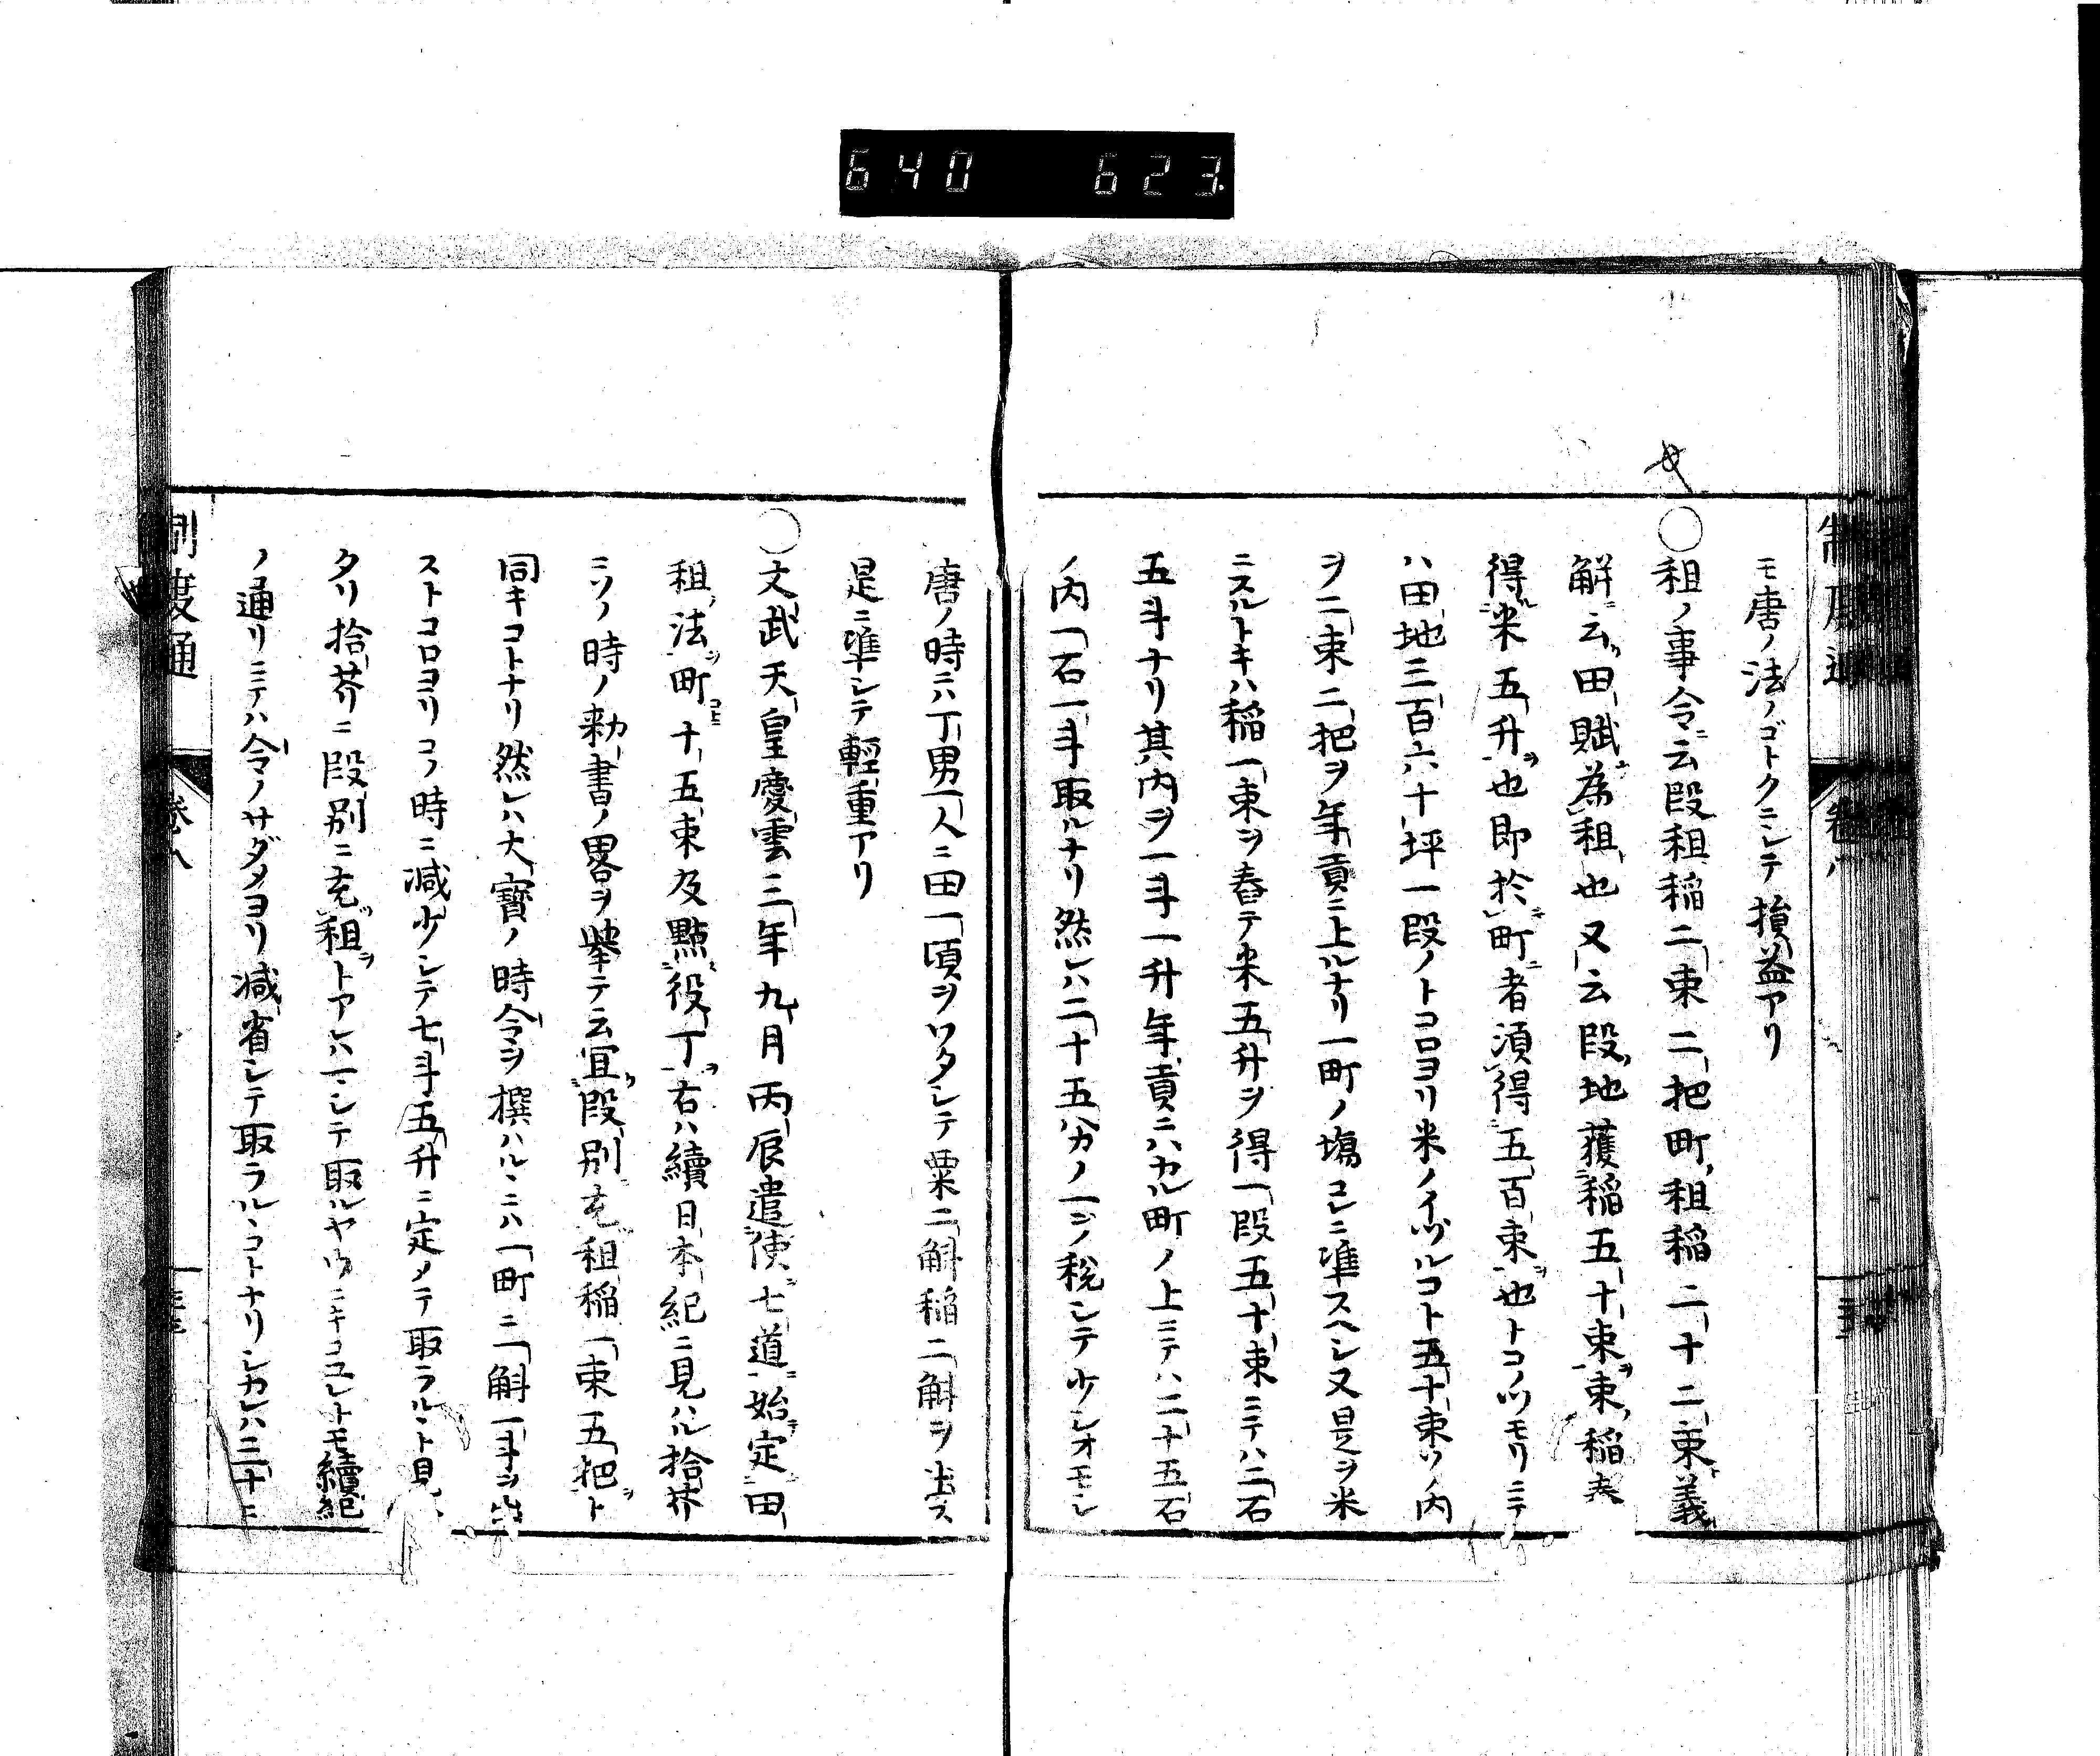 640 623
制度通 卷八
モ唐ノ法ノゴトクニシテ損益アリ
〇租ノ事令ニ云段租稲二束二把町租稲二十二束義
解ニ云田賦為租也又云段地獲稲五十束束稲舂
得米五升也即於町者須得五百束也トコノツモリニテ
ハ田地三百六十坪一段ノトコロヨリ米ノイヅルコト五十束ソノ内
ヲ二束二把ヲ年貢ニ上ルナリ一町ノ塲コレニ準スヘシ又是ヲ米
ニスルトキハ稲一束ヲ舂テ米五升ヲ得一段五十束ニテハ二石
五斗ナリ其内ヲ一斗一升年貢ニハカル町ノ上ニテハ二十五石
ノ内一石一斗取ルナリ然レハ二十五分ノ一ヲ税シテ少シオモシ
唐ノ時ニハ丁男一人ニ田一頃ヲワタシテ粟二斛稲二斛ヲ出ス
是ニ準シテ輕重アリ
〇文武天皇慶雲三年九月丙辰遣使七道始定田
租法町十五束及點役丁右ハ續日本紀ニ見ハル拾芥
ニソノ時ノ勅書ノ畧ヲ舉テ云宜段別充租稲一束五把ト
同キコトナリ然レハ大寶ノ時令ヲ撰ハルヽニハ一町ニ一斛一斗ヲ出
ストコロヨリコノ時ニ減少シテ七斗五升ニ定メテ取ラルヽト見
タリ拾芥ニ段別ニ充租トアレハ一ニシテ取ルヤウニキコユレトモ續紀
ノ通リニテハ令ノサダメヨリ減省シテ取ラルヽコトナリシカレハ三十三
制度通 卷八